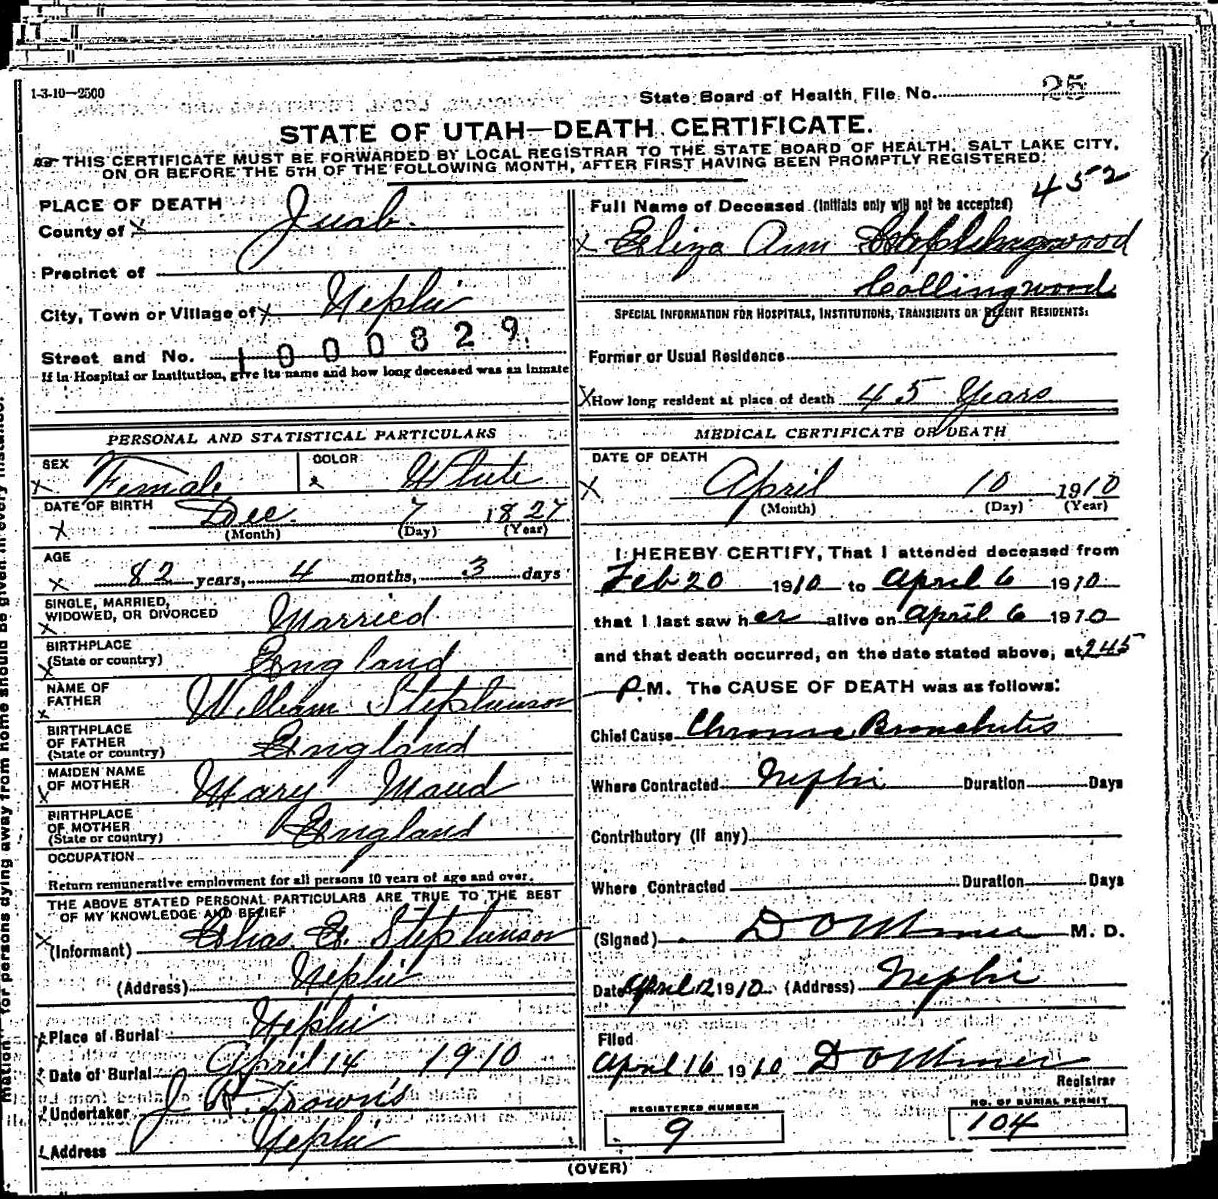 1-3-10—2500
State Board of Health File No. 25
STATE OF UTAH—DEATH CERTIFICATE.
THIS CERTIFICATE MUST BE FORWARDED BY LOCAL REGISTRAR TO THE STATE BOARD OF HEALTH, SALT LAKE CITY,
ON OR BEFORE THE 5TH OF THE FOLLOWING MONTH, AFTER FIRST HAVING BEEN PROMPTLY REGISTERED.
452
PLACE OF DEATH
County of x Juab.
Precinct of
City, Town or Village of x Nephi
Street and No. 1000829
If in Hospital or Institution, give its name and how long deceased was an inmate
Full Name of Deceased (Initials only will not be accepted)
x Eliza Ann
Collingwood
SPECIAL INFORMATION FOR HOSPITALS, INSTITUTIONS, TRANSIENTS OR RECENT RESIDENTS.
Former or Usual Residence
x How long resident at place of death 45 Years
PERSONAL AND STATISTICAL PARTICULARS
SEX x Female COLOR x White
DATE OF BIRTH x Dec. 7 1827
(Month) (Day) (Year)
AGE
x 82 years, 4 months, 3 days
SINGLE, MARRIED,
WIDOWED, OR DIVORCED x Married
BIRTHPLACE
(State or country) x England
NAME OF
FATHER x William Stephenson
BIRTHPLACE
OF FATHER
(State or country) England
MAIDEN NAME
OF MOTHER x Mary Maud
BIRTHPLACE
OF MOTHER
(State or country) England
OCCUPATION
Return remunerative employment for all persons 10 years of age and over.
THE ABOVE STATED PERSONAL PARTICULARS ARE TRUE TO THE BEST
OF MY KNOWLEDGE AND BELIEF
x (Informant) Elias E. Stephenson
(Address) Nephi
x Place of Burial Nephi
x Date of Burial April 14 1910
x Undertaker J H. Downs
x Address Nephi
MEDICAL CERTIFICATE OF DEATH
DATE OF DEATH
x April 10 1910
(Month) (Day) (Year)
I HEREBY CERTIFY, That I attended deceased from
Feb 20 1910 to April 6 1910
that I last saw her alive on April 6 1910
and that death occurred, on the date stated above, at 245
P.M. The CAUSE OF DEATH was as follows:
Chief Cause Chronic Bronchitis
Where Contracted Nephi Duration Days
Contributory (if any)
Where Contracted Duration Days
(Signed) M. D.
Date April 12 1910 (Address) Nephi
Filed
April 16 1910
Registrar
REGISTERED NUMBER
9
NO. OF BURIAL PERMIT
104
(OVER)